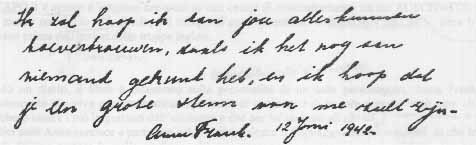 Ik zal hoop ik aan jou alles kunnen
toevertrouwen, zoals ik het nog aan
niemand gekund heb, en ik hoop dat
je een grote steun van me zult zijn.
Anne Frank. 12 Juni 1942.